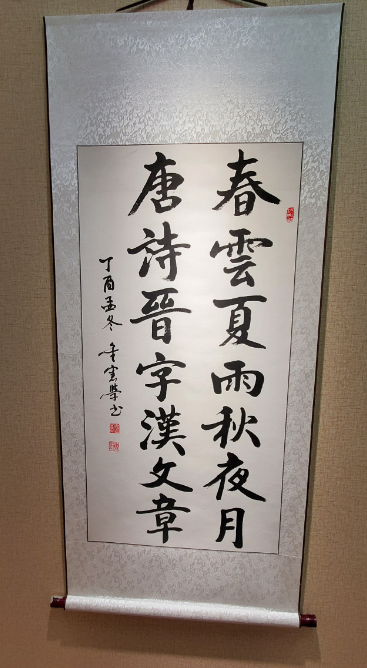 春雲夏雨秋夜月
唐詩晉字漢文章
丁酉孟冬 雲榮书